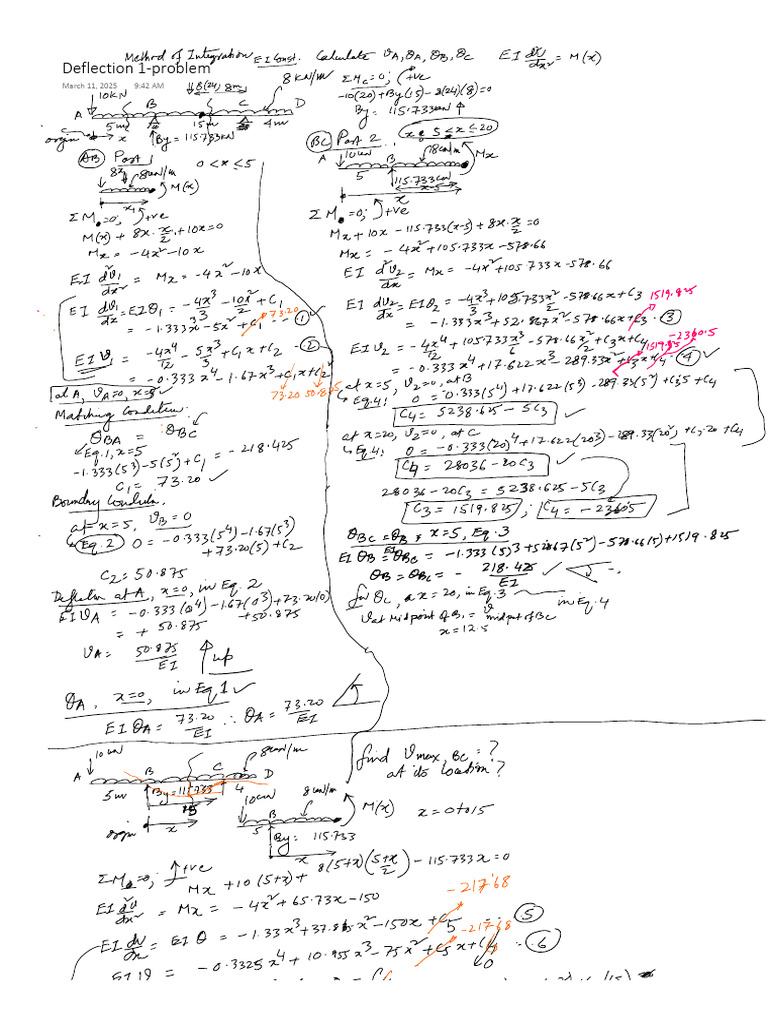 Method of Integration EI Const. Calculate υA, θA, θB, θC EI d²υ/dx² = M(x)
Deflection 1-problem
March 11, 2025 9:42 AM
8(24) 8m
8 kN/m
10kN
A B C D
5m 15m 4m
origin x By = 115.733kN
ΣMC=0; +ve
-10(20)+By(15)-8(24)(8)=0
By = 115.733kN ↑
AB Part 1 0<x≤5
8x 8kN/m
M(x)
x
ΣM=0; +ve
M(x) + 8x·x/2 + 10x=0
Mx = -4x²-10x
EI d²υ1/dx² = Mx = -4x²-10x
EI dυ1/dx = EIθ1 = -4x³/3 - 10x²/2 + C1
73.20
= -1.333x³-5x²+C1 -- ①
EI υ1 = -4x⁴/12 - 5x³/3 + C1x + C2 - ②
= -0.333x⁴ - 1.67x³ + C1x + C2
73.20 50.875
at A, υA=0, x=5
Matching Condition:
θBA = θBC
Eq.1, x=5
-1.333(5³)-5(5²)+C1 = -218.425
C1 = 73.20
Boundary Condition.
at x=5, υB=0
Eq.2 0 = -0.333(5⁴)-1.67(5³)
+73.20(5)+C2
C2=50.875
Deflection at A, x=0, in Eq. 2
EIυA = -0.333(0⁴)-1.67(0³)+73.20(0)
+50.875
= + 50.875
υA = 50.875/EI ↑ up
θA, x=0, in Eq 1
EIθA = 73.20/EI ∴ θA = 73.20/EI
BC Part 2. x = 5≤x≤20
A 10kN B 8kN/m Mx
5 115.733kN
x-5
x
ΣM=0; +ve
Mx+10x-115.733(x-5)+8x·x/2=0
Mx = -4x²+105.733x-578.66
EI d²υ2/dx² = Mx = -4x²+105.733x-578.66
EI dυ2/dx = EIθ2 = -4x³/3 + 105.733x²/2 - 578.66x+C3
1519.825
= -1.333x³+52.867x²-578.66x+C3 - ③
EIυ2 = -4x⁴/12 + 105.733x³/6 - 578.66x²/2 + C3x+C4
1519.825 -2360.5
= -0.333x⁴+17.622x³-289.33x²+C3x+C4 ④
at x=5, υ2=0, at B
Eq.4: 0 = -0.333(5⁴)+17.622(5³)-289.33(5²)+C3·5+C4
C4= 5238.625-5C3
at x=20, υ2=0, at C
Eq.4: 0 = -0.333(20)⁴+17.622(20³)-289.33(20²)+C3·20+C4
C4 = 28036-20C3
28036-20C3 = 5238.625-5C3
C3 = 1519.825; C4 = -2360.5
θBC=θB & x=5, Eq.3
EIθB = EIθBC = -1.333(5)3+52.867(5²)-578.66(5)+1519.825
θB=θBC = - 218.425/EI
for θC, x=20, in Eq.3
υ at midpoint of BC = υ midpt of BC in Eq.4
x=12.5
10kN
8kN/m
A B C D
5m By=115.733 4
15
origin x
10kN 8kN/m M(x)
5 B
By = 115.733
x
find υmax, BC = ?
at its location?
x = 0 to 15
ΣM=0; +ve
Mx+10(5+x)+8(5+x)(5+x/2)-115.733x=0
EI d²υ/dx² = Mx = -4x²+65.73x-150
-217.68
EI dυ/dx = EIθ = -1.33x³+37.865x²-150x+C5 ⑤
-217.68
EIυ = -0.3325x⁴+10.955x³-75x²+C5x+C6 - ⑥
0